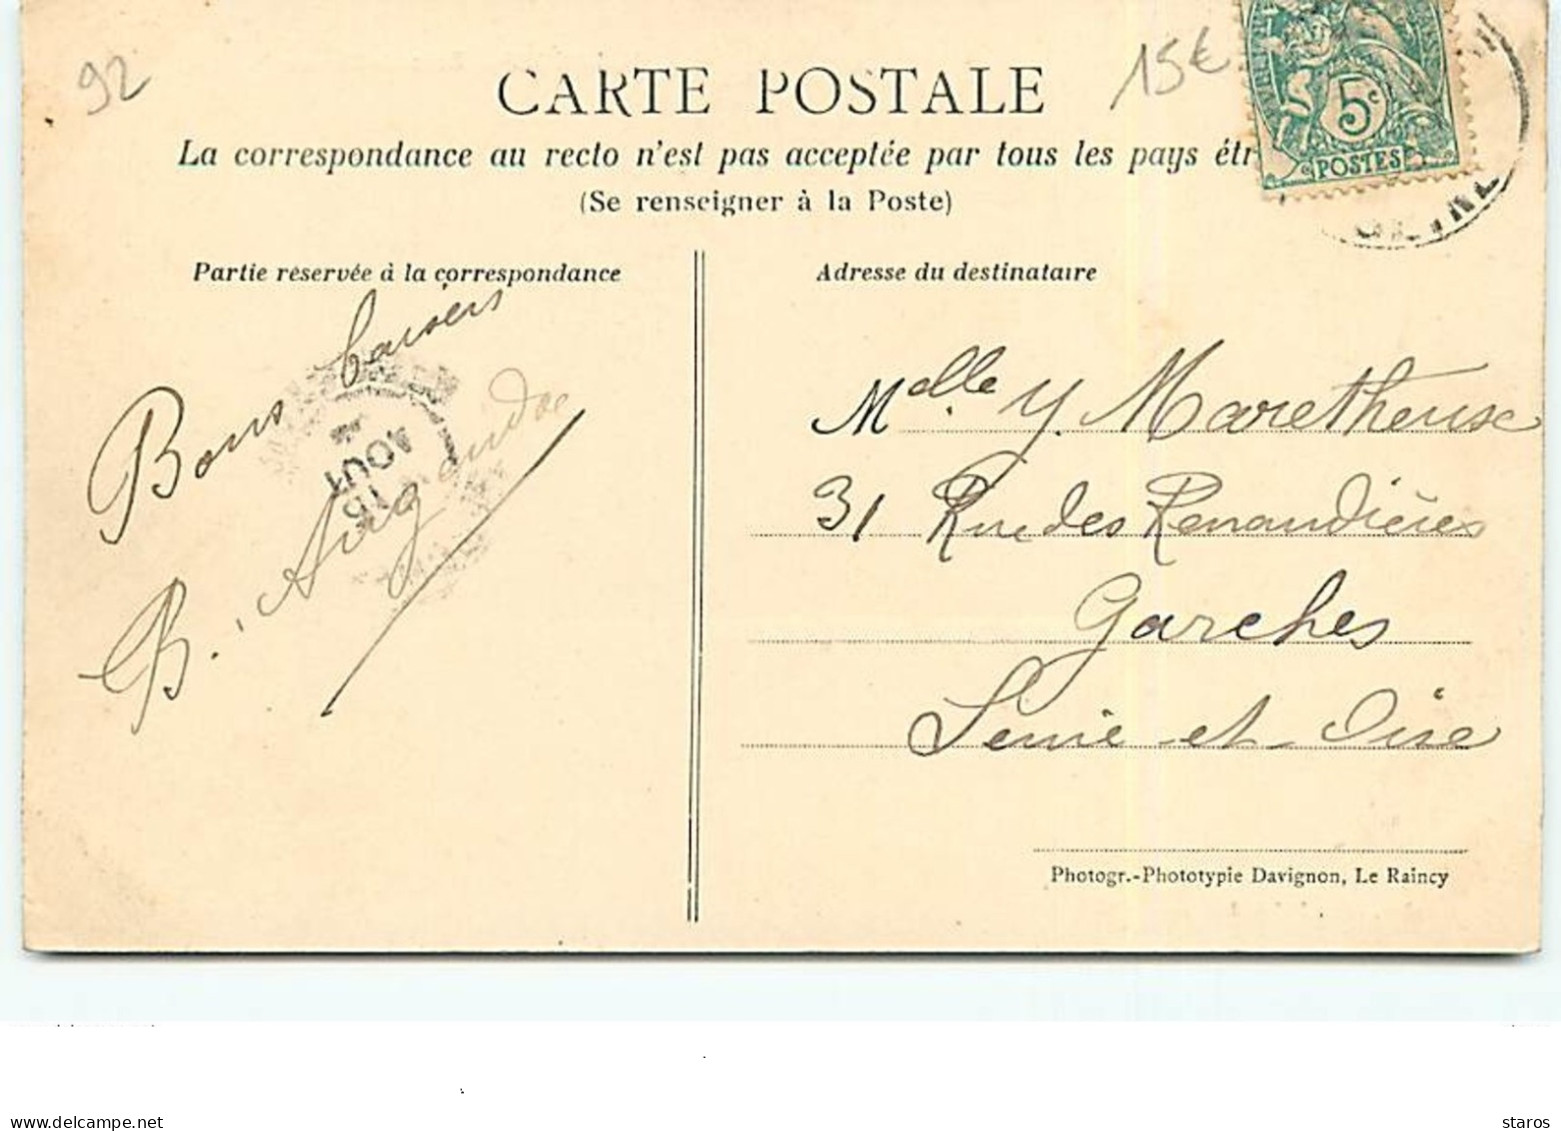 92
15€
CARTE POSTALE
5c
POSTES
La correspondance au recto n'est pas acceptée par tous les pays étr
(Se renseigner à la Poste)
Partie réservée à la correspondance
Bons baisers
AOUT
B.
Adresse du destinataire
Melle Y. Maretheuse
31 Rue des Renaudières
Garches
Seine-et-Oise
Photogr.-Phototypie Davignon, Le Raincy
www.delcampe.net
staros